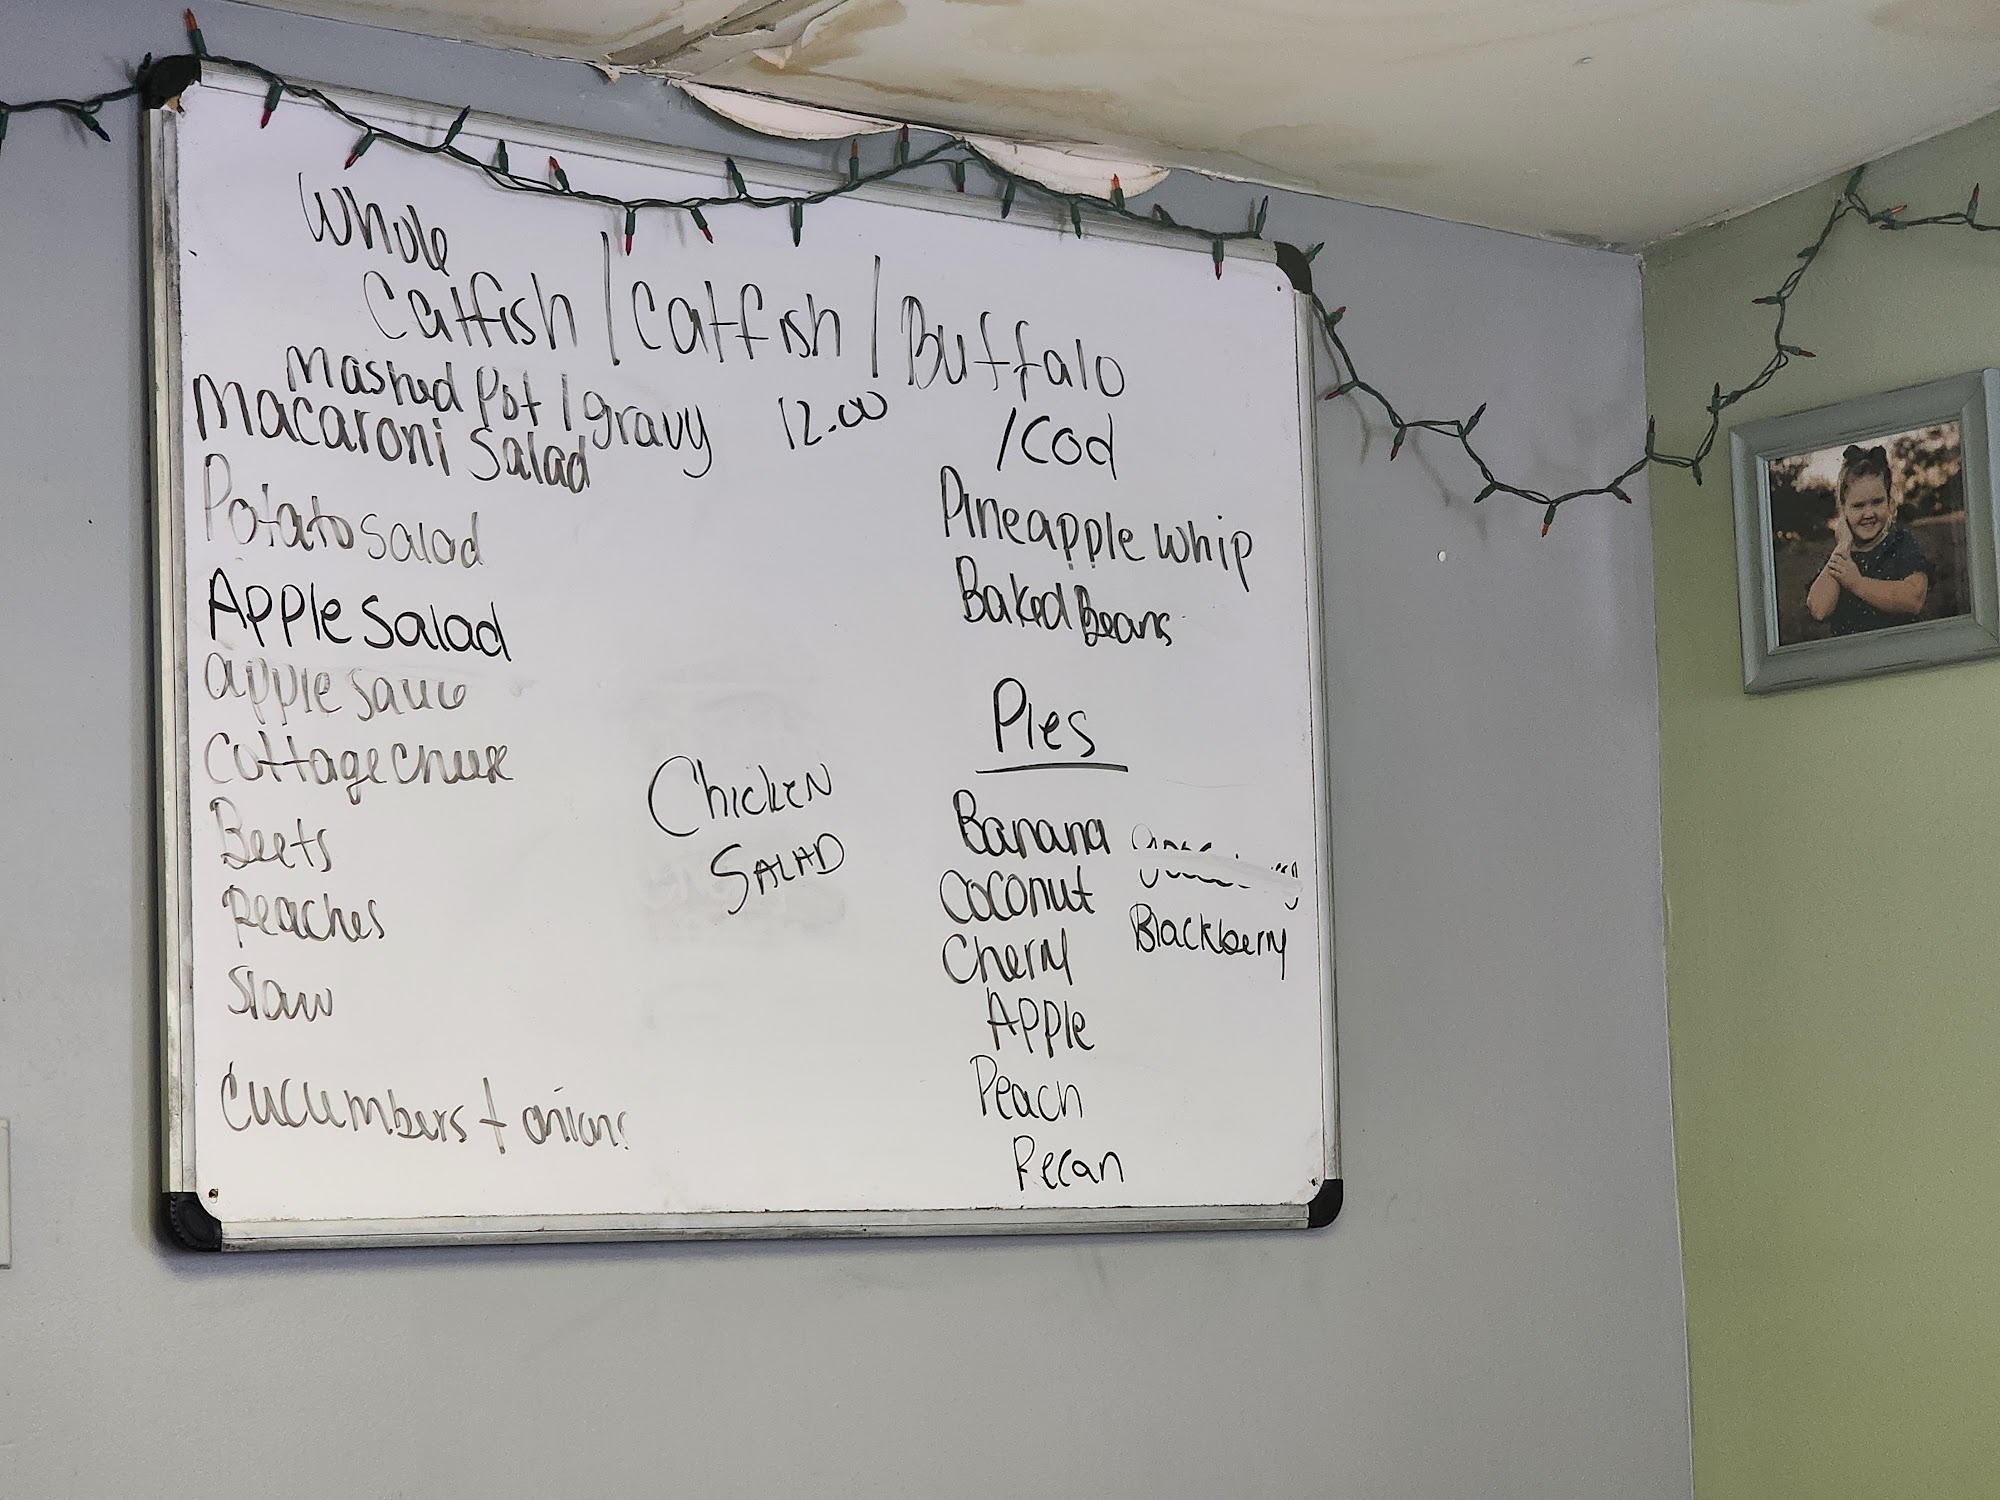 Whole
Catfish / Catfish / Buffalo
/ Cod
Mashed Pot / gravy 12.00
Macaroni Salad
Potato Salad
Apple Salad
apple sauce
Cottage Cheese
Beets
Peaches
Slaw
Cucumbers + onions
Chicken
SALAD
Pineapple Whip
Baked Beans
Pies
Banana
Coconut
Blackberry
Cherry
Apple
Peach
Pecan